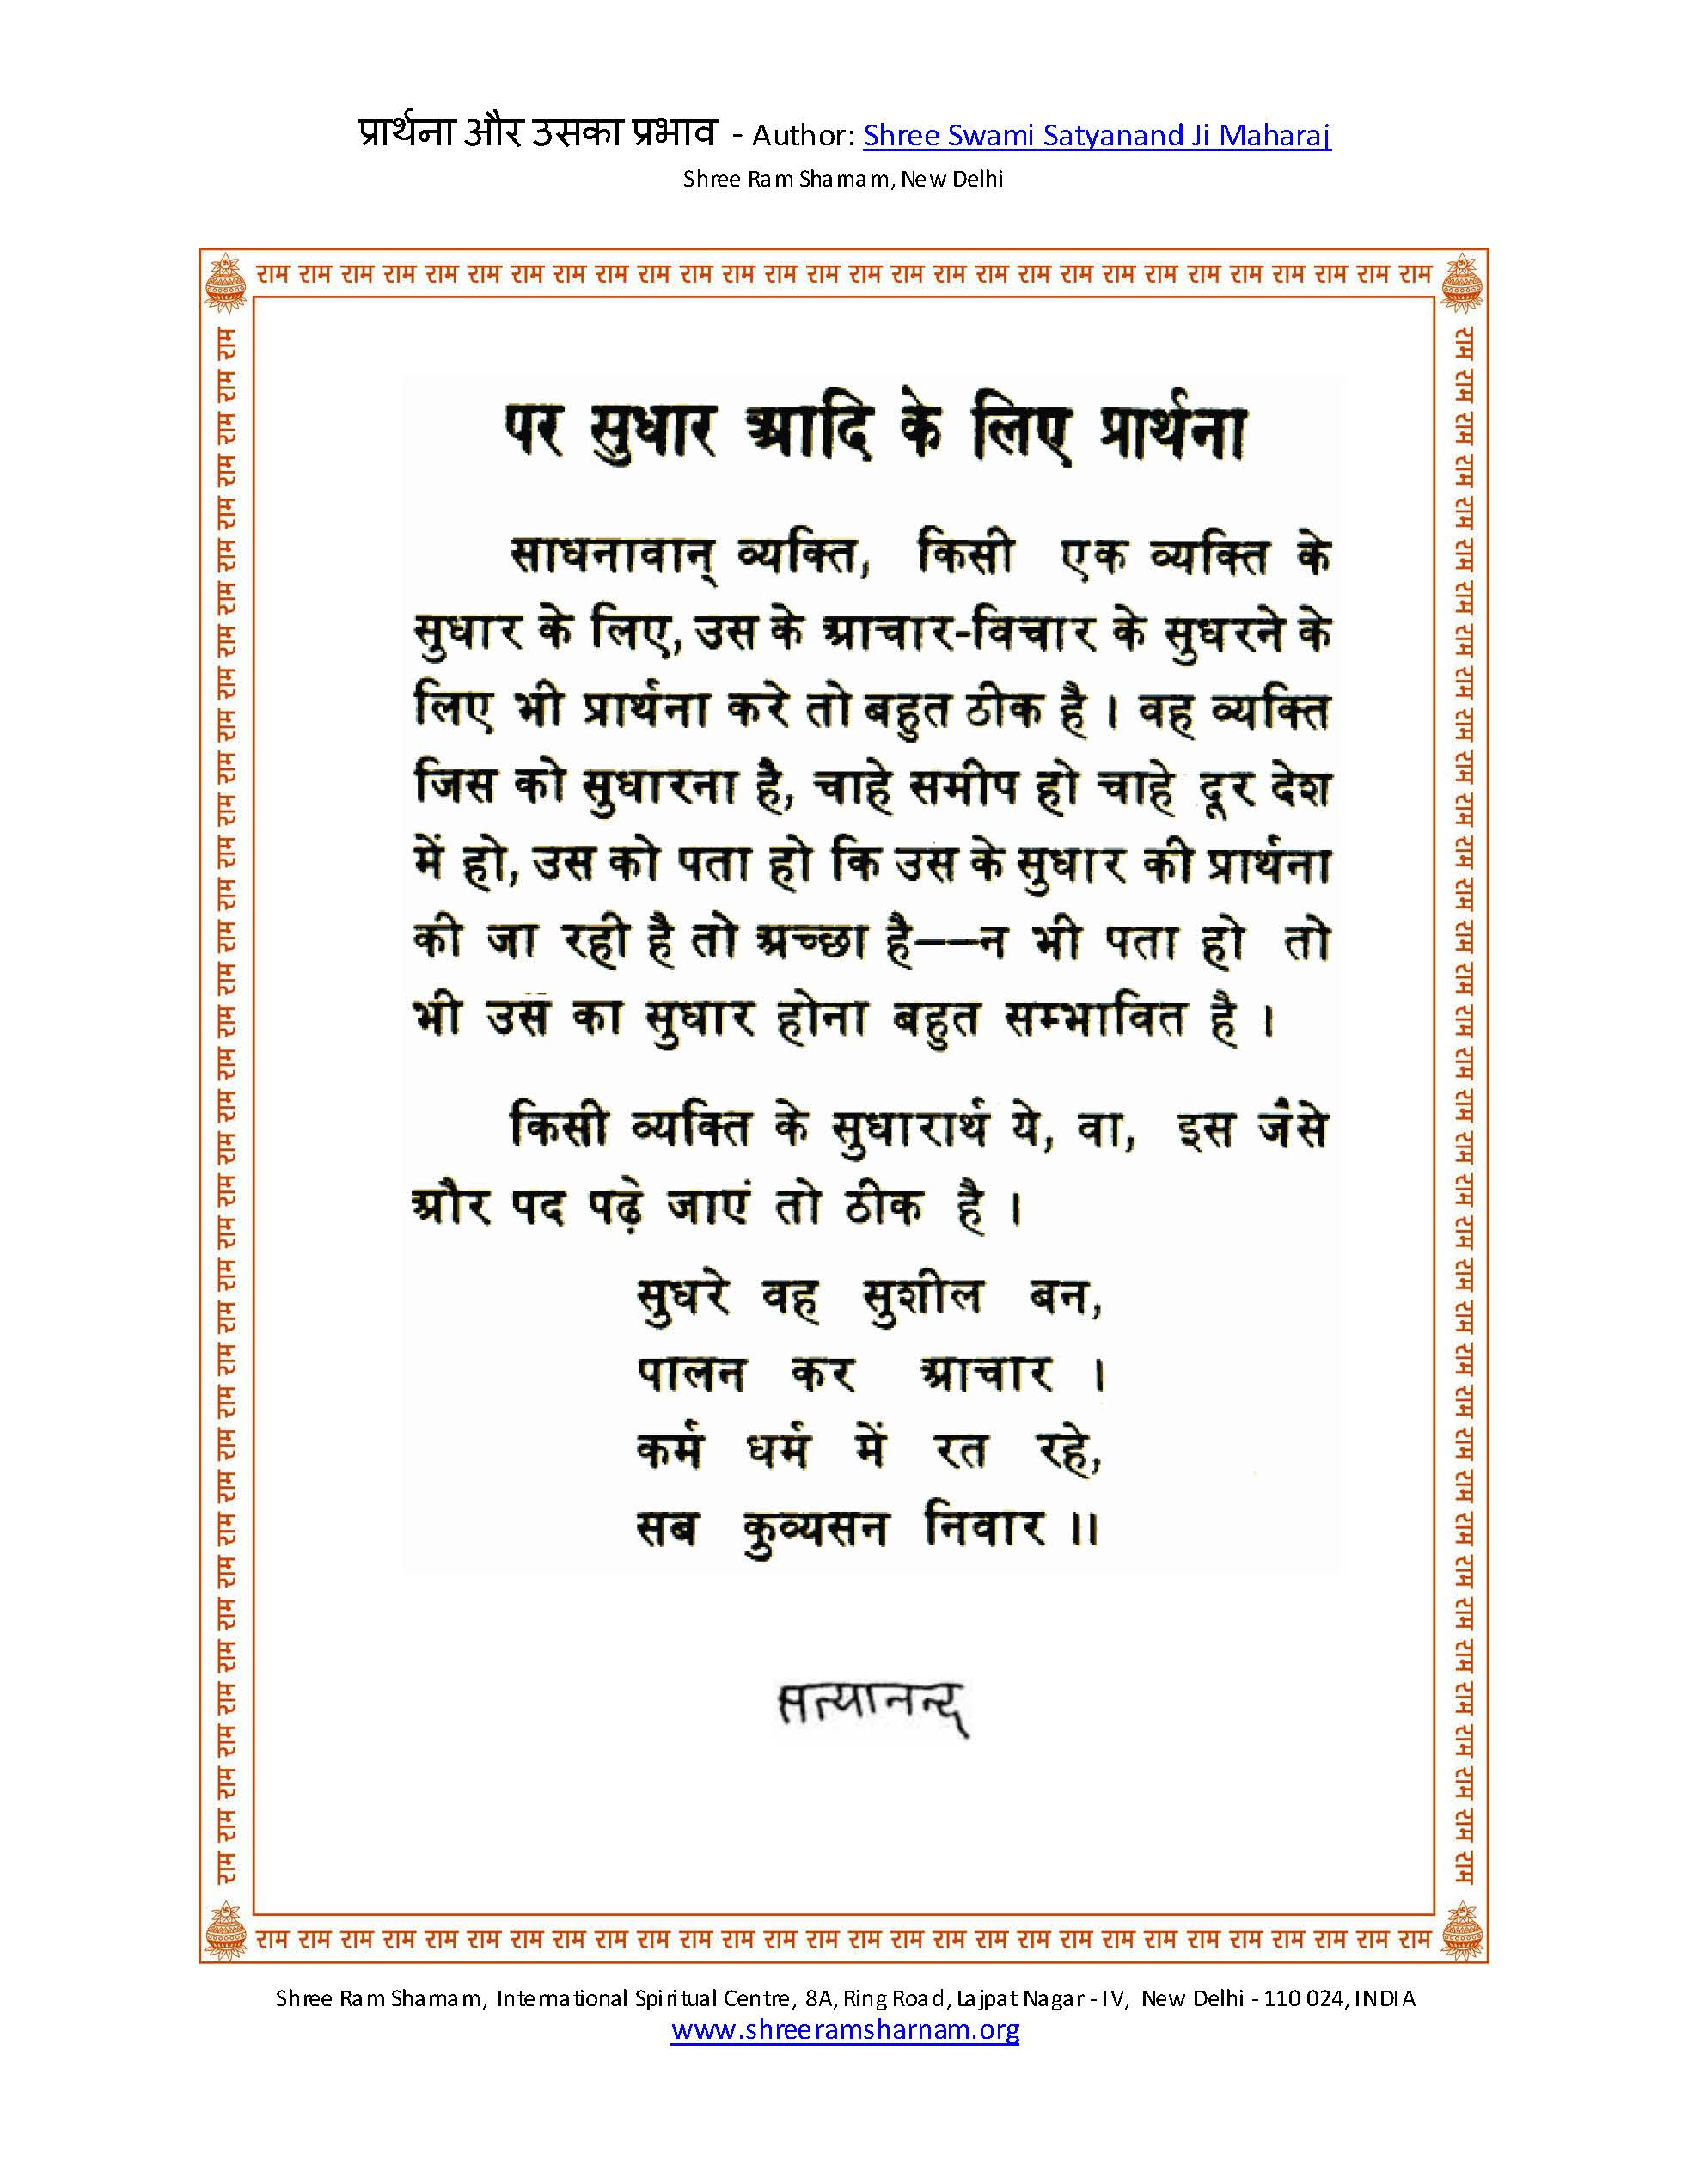 प्रार्थना और उसका प्रभाव - Author: Shree Swami Satyanand Ji Maharaj
Shree Ram Sharnam, New Delhi
राम राम राम राम राम राम राम राम राम राम राम राम राम राम राम राम राम राम राम राम राम राम राम राम राम राम राम राम
पर सुधार आदि के लिए प्रार्थना
साधनावान् व्यक्ति, किसी एक व्यक्ति के
सुधार के लिए, उस के आचार-विचार के सुधरने के
लिए भी प्रार्थना करे तो बहुत ठीक है । वह व्यक्ति
जिस को सुधारना है, चाहे समीप हो चाहे दूर देश
में हो, उस को पता हो कि उस के सुधार की प्रार्थना
की जा रही है तो अच्छा है——न भी पता हो तो
भी उस का सुधार होना बहुत सम्भावित है ।
किसी व्यक्ति के सुधारार्थ ये, वा, इस जैसे
और पद पढ़े जाएं तो ठीक है ।
सुधरे वह सुशील बन,
पालन कर आचार ।
कर्म धर्म में रत रहे,
सब कुव्यसन निवार ॥
सत्यानन्द
राम राम राम राम राम राम राम राम राम राम राम राम राम राम राम राम राम राम राम राम राम राम राम राम राम राम राम राम
Shree Ram Sharnam, International Spiritual Centre, 8A, Ring Road, Lajpat Nagar - IV, New Delhi - 110 024, INDIA
www.shreeramsharnam.org